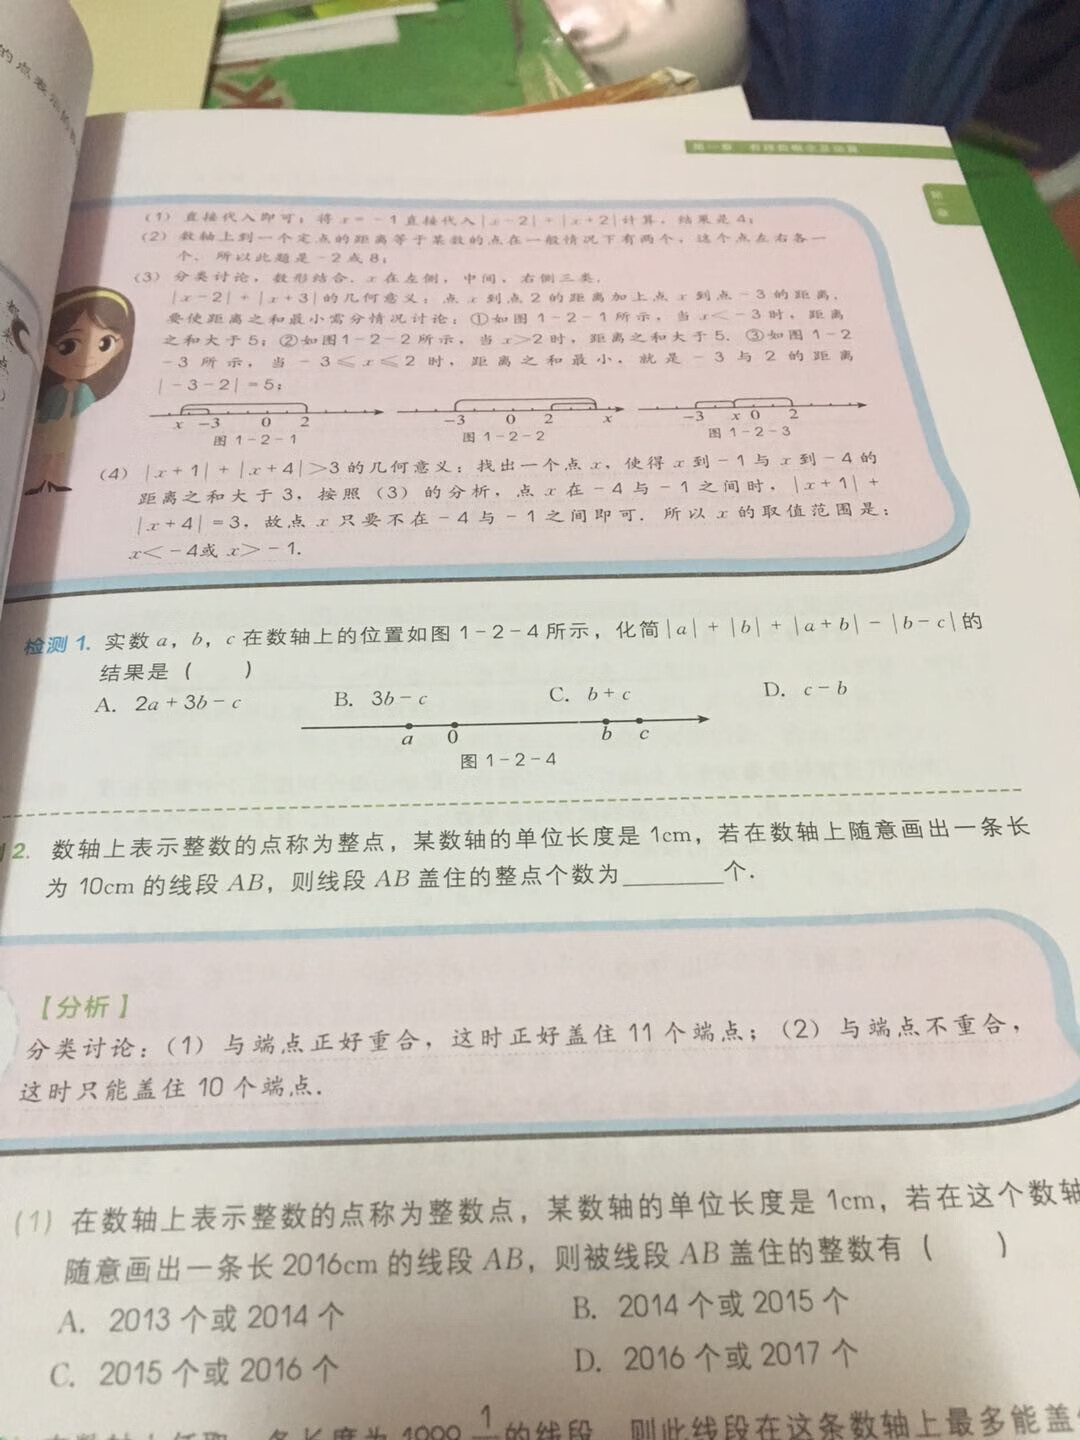 的点表示的
第一章 有理数概念及运算
第一章
(1) 直接代入即可：将x=-1直接代入|x-2|+|x+2|计算，结果是4；
(2) 数轴上到一个定点的距离等于某数的点在一般情况下有两个，这个点左右各一
个．所以此题是-2或8；
(3) 分类讨论，数形结合．x在左侧，中间，右侧三类．
|x-2|+|x+3|的几何意义：点x到点2的距离加上点x到点-3的距离．
要使距离之和最小需分情况讨论：①如图1-2-1所示，当x<-3时，距离
之和大于5；②如图1-2-2所示，当x>2时，距离之和大于5．③如图1-2
-3所示，当-3⩽x⩽2时，距离之和最小，就是-3与2的距离
|-3-2|=5；
x -3 0 2 -3 0 2 x -3 x 0 2
图1-2-1 图1-2-2 图1-2-3
(4) |x+1|+|x+4|>3的几何意义：找出一个点x，使得x到-1与x到-4的
距离之和大于3，按照（3）的分析，点x在-4与-1之间时，|x+1|+
|x+4|=3，故点x只要不在-4与-1之间即可．所以x的取值范围是：
x<-4或x>-1．
检测1. 实数a，b，c在数轴上的位置如图1-2-4所示，化简|a|+|b|+|a+b|-|b-c|的
结果是（ ）
A. 2a+3b-c B. 3b-c C. b+c D. c-b
a 0 b c
图1-2-4
2. 数轴上表示整数的点称为整点，某数轴的单位长度是1cm，若在数轴上随意画出一条长
为10cm的线段AB，则线段AB盖住的整点个数为________个．
【分析】
分类讨论：（1）与端点正好重合，这时正好盖住11个端点；（2）与端点不重合，
这时只能盖住10个端点．
(1) 在数轴上表示整数的点称为整数点，某数轴的单位长度是1cm，若在这个数轴
随意画出一条长2016cm的线段AB，则被线段AB盖住的整数有（ ）
A. 2013个或2014个 B. 2014个或2015个
C. 2015个或2016个 D. 2016个或2017个
条长度为1999 1 的线段，则此线段在这条数轴上最多能盖